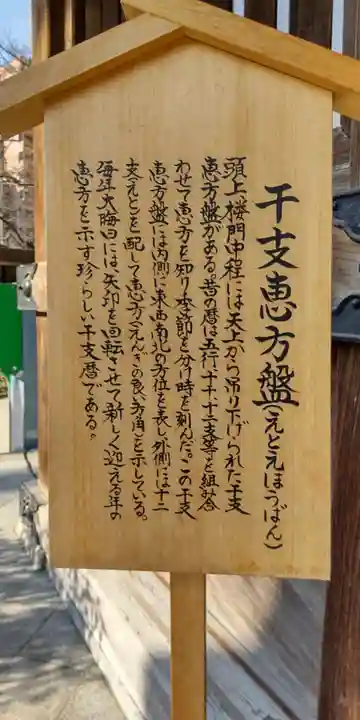 干支恵方盤(えとえほうばん)
頭上楼門中程には天上から吊り下げられた干支
恵方盤がある。昔の暦は五行、十干、十二支等を組み合
わせて恵方を知り季節を分け時を刻んだ。この干支
恵方盤には内側に東西南北の方位を表し、外側には十二
支(えと)を配して恵方(えんぎの良い方角)を示している。
毎年大晦日には、矢印を回転させて新しく迎える年の
恵方を示す珍らしい干支暦である。